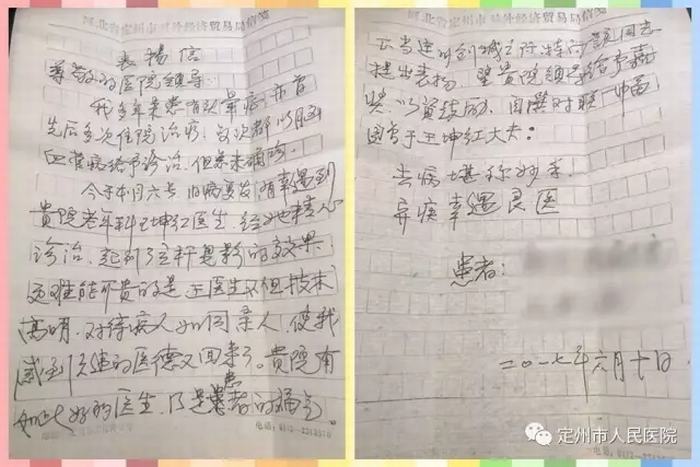 河北省定州市对外经济贸易局信笺
表扬信
尊敬的医院领导:
我多年来患有头晕症,亦曾
先后多次住院治疗,每次都以脑
血管病给予诊治,但未来确诊。
今于本月六号,旧病复发,有幸遇到
贵院老年科王坤红医生,经她精心
诊治,起到了立杆见影的效果,
更难能可贵的是王医生不但技术
高明,对待病人如同亲人,使我
感到久违的医德又回来了。贵院有
如此好的医生,乃是患者的福音。
电话:0312—2313510
河北省定州市对外经济贸易局信笺
同志
提出表扬,望贵院领导给予嘉
奖,以资鼓励,自撰对联一幅
送给于王坤红大夫:
去病堪称妙手
弃疾幸遇良医
患者:
二〇一七年六月十日
电话:0312
定州市人民医院